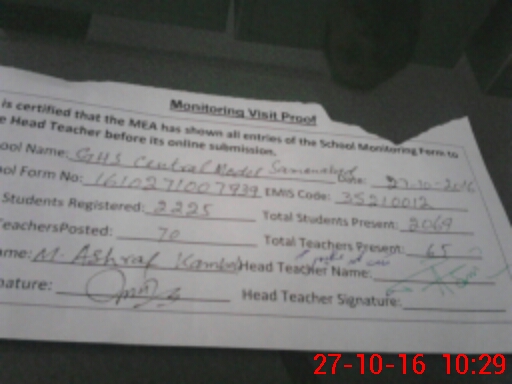 Monitoring Visit Proof
is certified that the MEA has shown all entries of the School Monitoring Form to
e Head Teacher before its online submission.
ool Name: GHS Central Model Date: 27-10-2016
ool Form No: 1610271007939 EMIS Code: 35210012
Students Registered: 2225 Total Students Present: 2069
TeachersPosted: 70 Total Teachers Present: 65
ame: M. Ashraf Head Teacher Name:
nature: Head Teacher Signature:
27-10-16 10:29